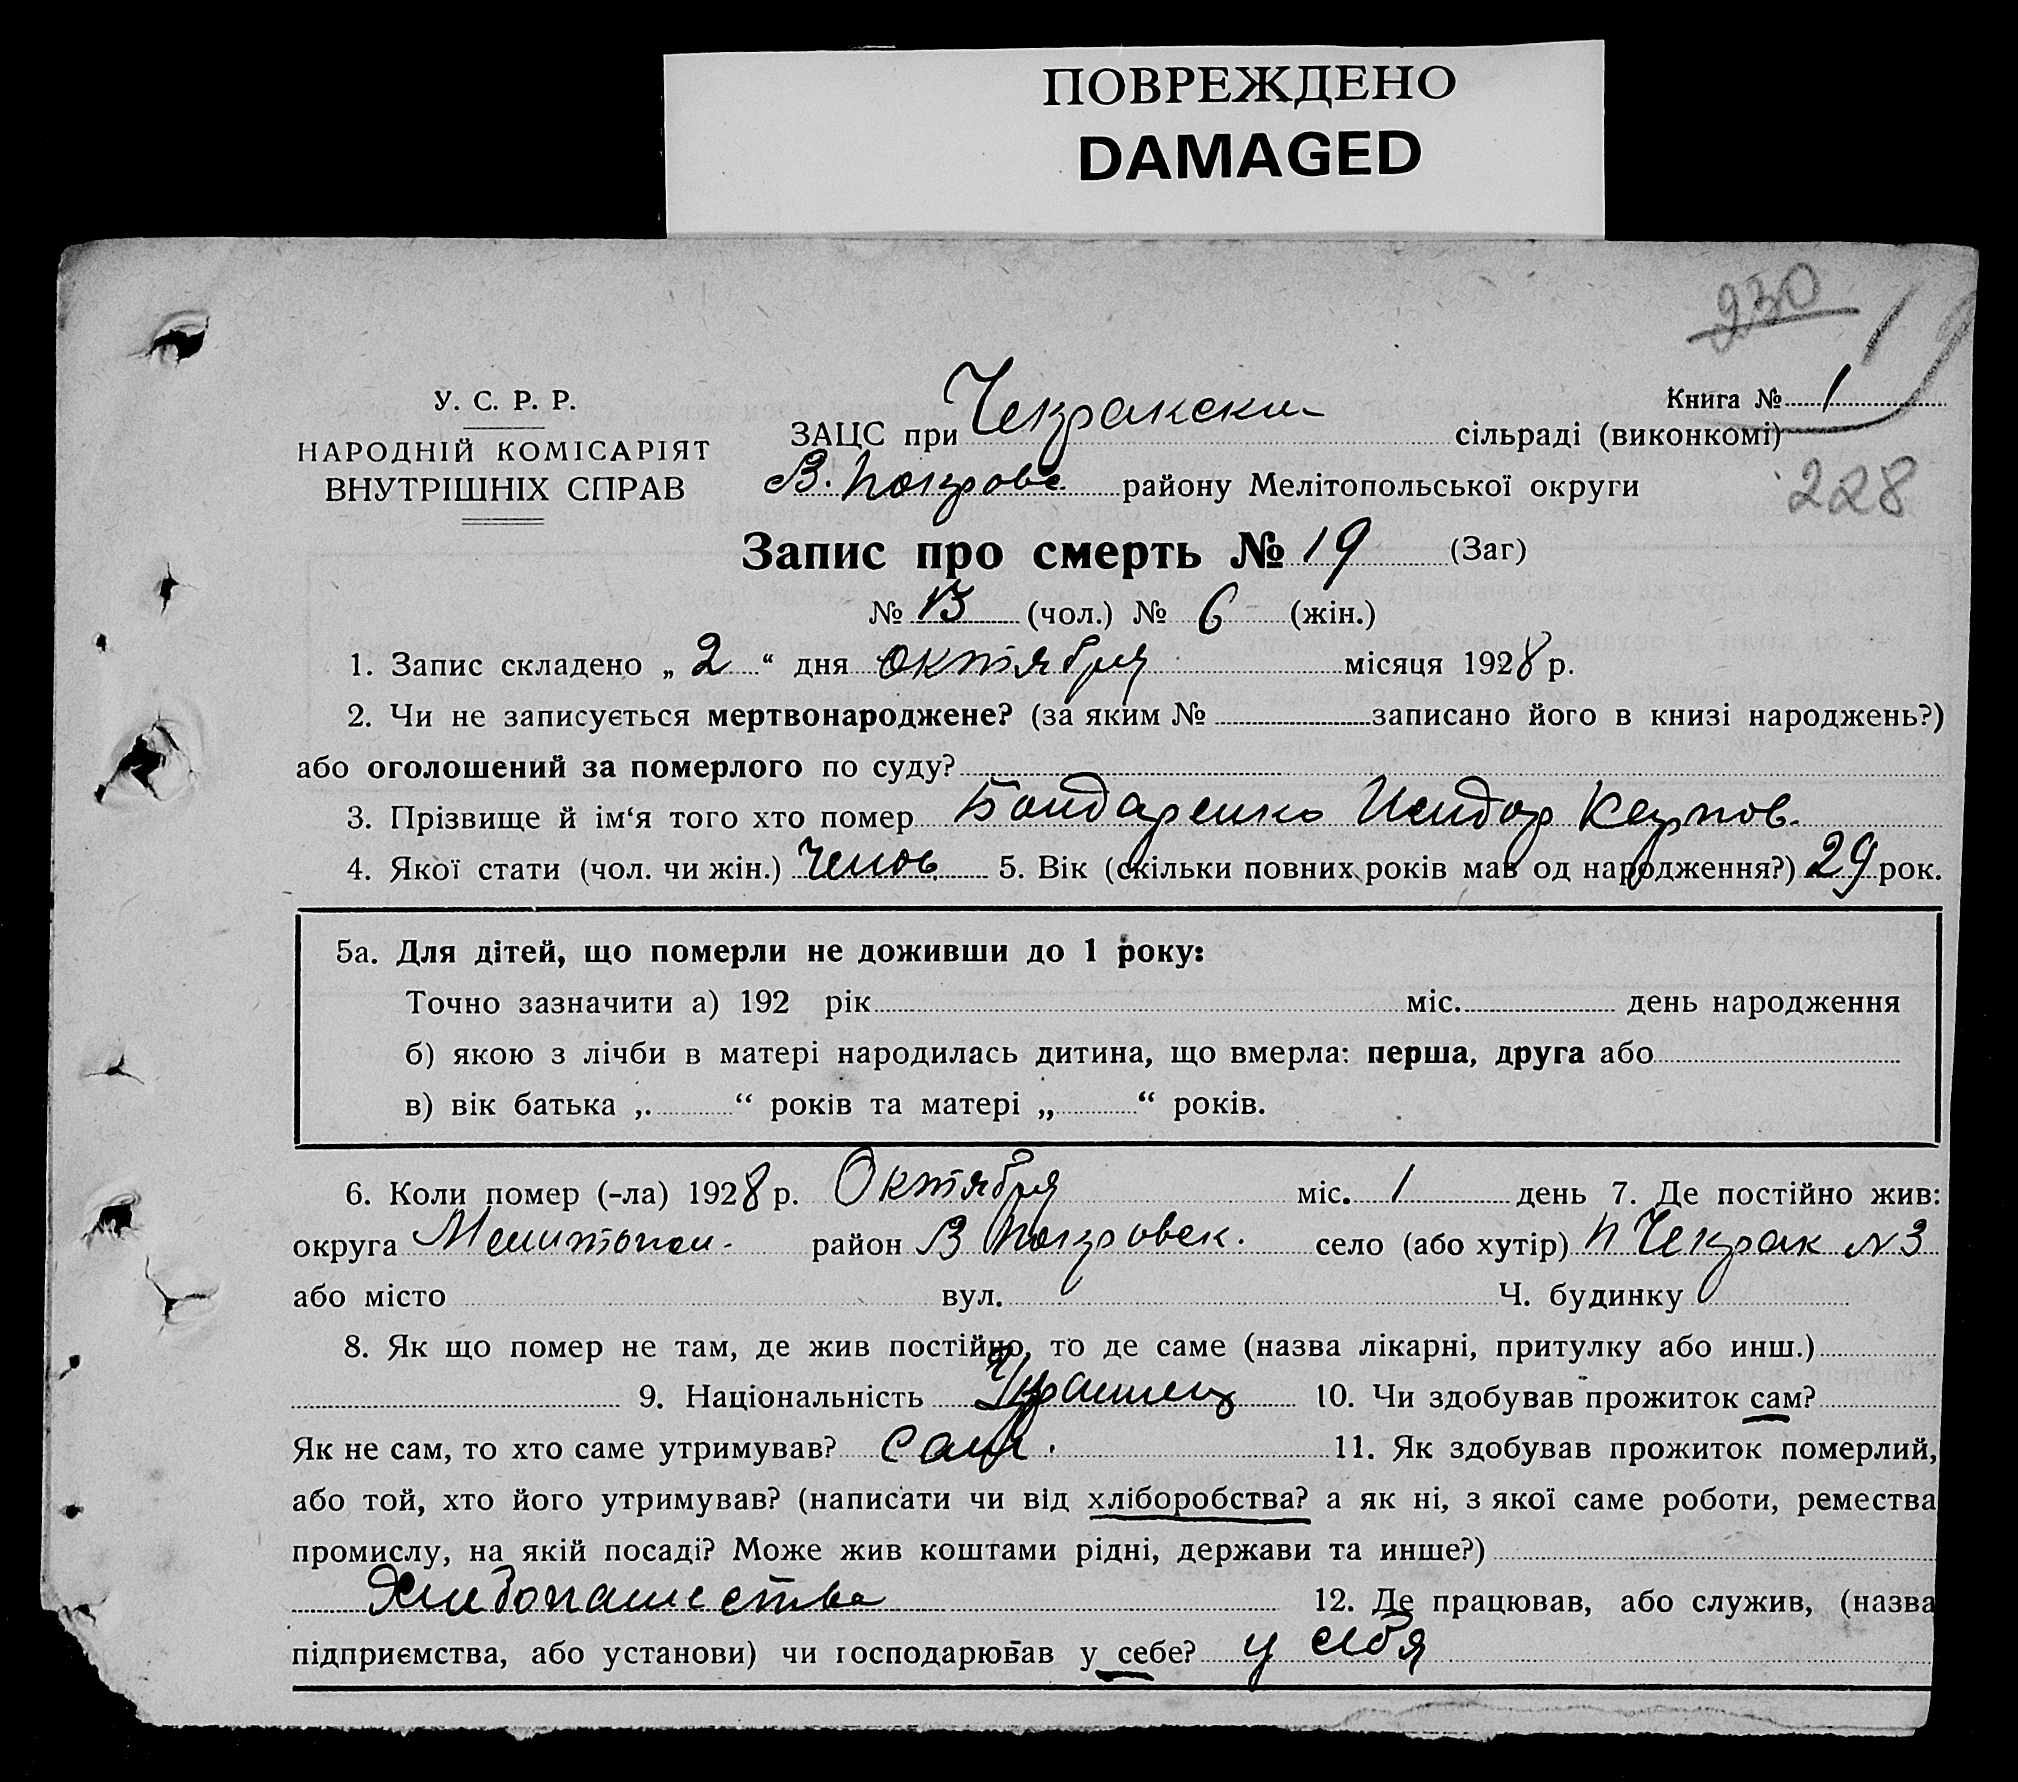 ПОВРЕЖДЕНО
DAMAGED
230
19
У. С. Р. Р.
НАРОДНІЙ КОМІСАРІЯТ
ВНУТРІШНІХ СПРАВ
Книга № 1
ЗАЦС при Чекракски- сільраді (виконкомі)
В. Покровс. району Мелітопольської округи
228
Запис про смерть № 19 (Заг)
№ 13 (чол.) № 6 (жін.)
1. Запис складено „ 2 “ дня октября місяця 1928 р.
2. Чи не записується мертвонароджене? (за яким № записано його в книзі народжень?)
або оголошений за померлого по суду?
3. Прізвище й ім‘я того хто помер Бондаренко Исидор Карпов.
4. Якої стати (чол. чи жін.) Челов. 5. Вік (скільки повних років мав од народження?) 29 рок.
5а. Для дітей, що померли не доживши до 1 року:
Точно зазначити а) 192 рік міс. день народження
б) якою з лічби в матері народилась дитина, що вмерла: перша, друга або
в) вік батька „ “ років та матері „ “ років.
6. Коли помер (-ла) 1928 р. Октября міс. 1 день 7. Де постійно жив:
округа Мелитопол- район В Покровск. село (або хутір) п Чекрак № 3
або місто вул. Ч. будинку
8. Як що помер не там, де жив постійно, то де саме (назва лікарні, притулку або инш.)
9. Національність Украинец 10. Чи здобував прожиток сам?
Як не сам, то хто саме утримував? Сам. 11. Як здобував прожиток померлий,
або той, хто його утримував? (написати чи від хліборобства? а як ні, з якої саме роботи, ремества
промислу, на якій посаді? Може жив коштами рідні, держави та инше?)
Хлебопашества 12. Де працював, або служив, (назва
підприємства, або установи) чи господарював у себе? у себя